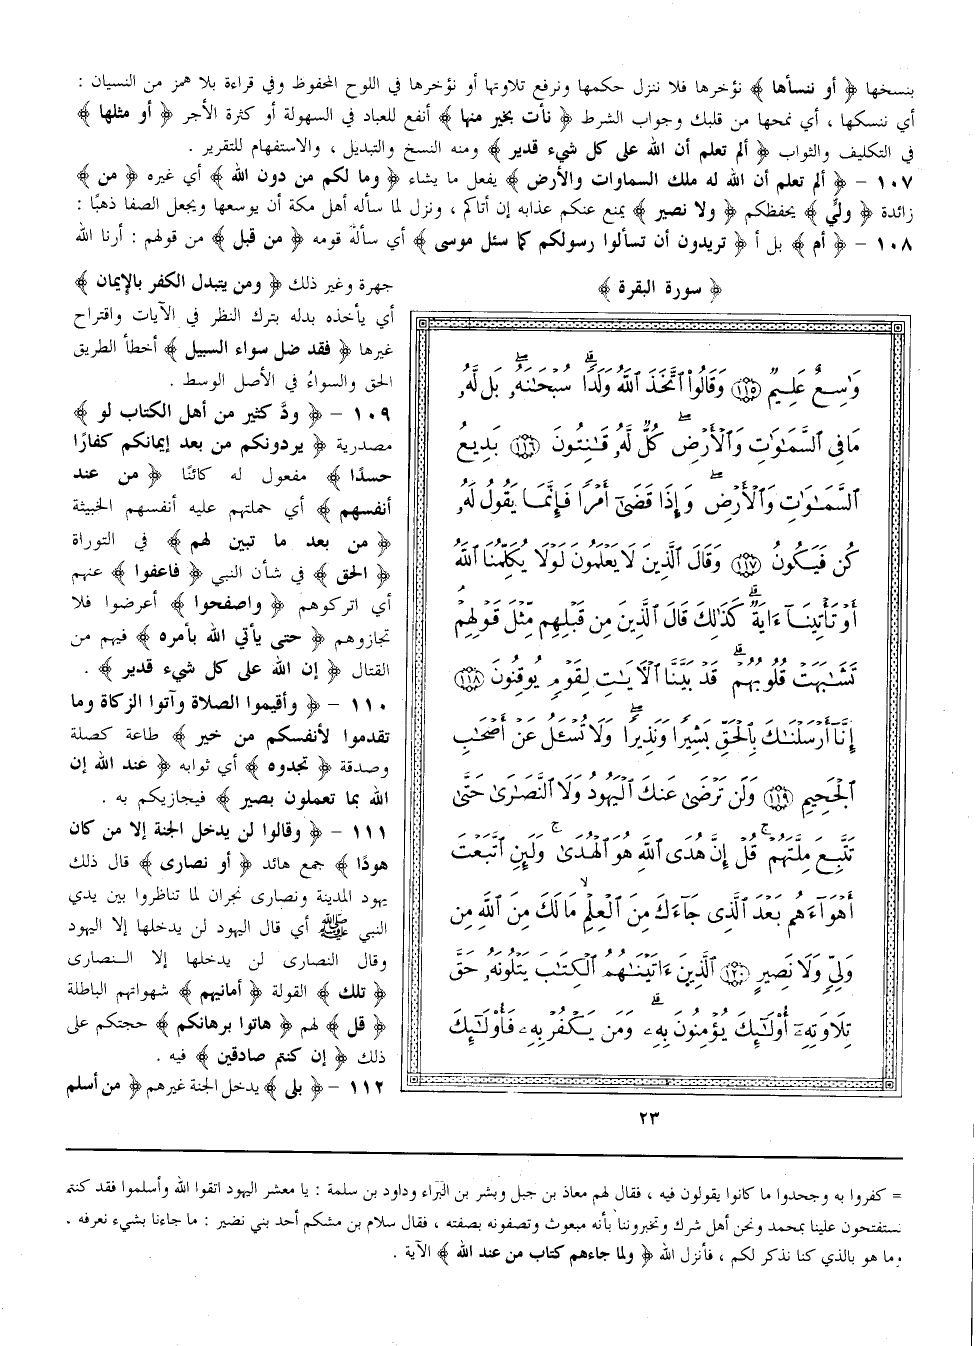 بنسخها ﴿ أو ننسأها ﴾ نؤخرها فلا ننزل حكمها ونرفع تلاوتها أو نؤخرها في اللوح المحفوظ وفي قراءة بلا همز من النسيان :
أي ننسكها ، أي نمحها من قلبك وجواب الشرط ﴿ نأت بخير منها ﴾ أنفع للعباد في السهولة أو كثرة الأجر ﴿ أو مثلها ﴾
في التكليف والثواب ﴿ ألم تعلم أن الله على كل شيء قدير ﴾ ومنه النسخ والتبديل ، والاستفهام للتقرير .
١٠٧ – ﴿ ألم تعلم أن الله له ملك السماوات والأرض ﴾ يفعل ما يشاء ﴿ وما لكم من دون الله ﴾ أي غيره ﴿ من ﴾
زائدة ﴿ وليٍّ ﴾ يحفظكم ﴿ ولا نصير ﴾ يمنع عنكم عذابه إن أتاكم ، ونزل لما سأله أهل مكة أن يوسعها ويجعل الصفا ذهبًا :
١٠٨ – ﴿ أم ﴾ بل أ ﴿ تريدون أن تسألوا رسولكم كما سئل موسى ﴾ أي سأله قومه ﴿ من قبل ﴾ من قولهم : أرنا الله
جهرة وغير ذلك ﴿ ومن يتبدل الكفر بالإيمان ﴾
أي يأخذه بدله بترك النظر في الآيات واقتراح
غيرها ﴿ فقد ضل سواء السبيل ﴾ أخطأ الطريق
الحق والسواءُ في الأصل الوسط .
١٠٩ – ﴿ ودَّ كثير من أهل الكتاب لو ﴾
مصدرية ﴿ يردونكم من بعد إيمانكم كفارًا
حسدًا ﴾ مفعول له كائنًا ﴿ من عند
أنفسهم ﴾ أي حملتهم عليه أنفسهم الخبيثة
﴿ من بعد ما تبين لهم ﴾ في التوراة
﴿ الحق ﴾ في شأن النبي ﴿ فاعفوا ﴾ عنهم
أي اتركوهم ﴿ واصفحوا ﴾ أعرضوا فلا
تجازوهم ﴿ حتى يأتي الله بأمره ﴾ فيهم من
القتال ﴿ إن الله على كل شيء قدير ﴾ .
١١٠ – ﴿ وأقيموا الصلاة وآتوا الزكاة وما
تقدموا لأنفسكم من خير ﴾ طاعة كصلة
وصدقة ﴿ تجدوه ﴾ أي ثوابه ﴿ عند الله إن
الله بما تعملون بصير ﴾ فيجازيكم به .
١١١ – ﴿ وقالوا لن يدخل الجنة إلا من كان
هودًا ﴾ جمع هائد ﴿ أو نصارى ﴾ قال ذلك
يهود المدينة ونصارى نجران لما تناظروا بين يدي
النبي ﷺ أي قال اليهود لن يدخلها إلا اليهود
وقال النصارى لن يدخلها إلا النصارى
﴿ تلك ﴾ القولة ﴿ أمانيهم ﴾ شهواتهم الباطلة
﴿ قل ﴾ لهم ﴿ هاتوا برهانكم ﴾ حجتكم على
ذلك ﴿ إن كنتم صادقين ﴾ فيه .
١١٢ – ﴿ بلى ﴾ يدخل الجنة غيرهم ﴿ من أسلم
﴿ سورة البقرة ﴾
وَٰسِعٌ عَلِيمٌ ﴿١١٥﴾ وَقَالُوا۟ ٱتَّخَذَ ٱللَّهُ وَلَدًا ۗ سُبْحَـٰنَهُۥ ۖ بَل لَّهُۥ
مَا فِى ٱلسَّمَـٰوَٰتِ وَٱلْأَرْضِ ۖ كُلٌّ لَّهُۥ قَـٰنِتُونَ ﴿١١٦﴾ بَدِيعُ
ٱلسَّمَـٰوَٰتِ وَٱلْأَرْضِ ۖ وَإِذَا قَضَىٰٓ أَمْرًا فَإِنَّمَا يَقُولُ لَهُۥ
كُن فَيَكُونُ ﴿١١٧﴾ وَقَالَ ٱلَّذِينَ لَا يَعْلَمُونَ لَوْلَا يُكَلِّمُنَا ٱللَّهُ
أَوْ تَأْتِينَآ ءَايَةٌ ۗ كَذَٰلِكَ قَالَ ٱلَّذِينَ مِن قَبْلِهِم مِّثْلَ قَوْلِهِمْ ۘ
تَشَـٰبَهَتْ قُلُوبُهُمْ ۗ قَدْ بَيَّنَّا ٱلْـَٔايَـٰتِ لِقَوْمٍ يُوقِنُونَ ﴿١١٨﴾
إِنَّآ أَرْسَلْنَـٰكَ بِٱلْحَقِّ بَشِيرًا وَنَذِيرًا ۖ وَلَا تُسْـَٔلُ عَنْ أَصْحَـٰبِ
ٱلْجَحِيمِ ﴿١١٩﴾ وَلَن تَرْضَىٰ عَنكَ ٱلْيَهُودُ وَلَا ٱلنَّصَـٰرَىٰ حَتَّىٰ
تَتَّبِعَ مِلَّتَهُمْ ۗ قُلْ إِنَّ هُدَى ٱللَّهِ هُوَ ٱلْهُدَىٰ ۗ وَلَئِنِ ٱتَّبَعْتَ
أَهْوَآءَهُم بَعْدَ ٱلَّذِى جَآءَكَ مِنَ ٱلْعِلْمِ ۙ مَا لَكَ مِنَ ٱللَّهِ مِن
وَلِىٍّ وَلَا نَصِيرٍ ﴿١٢٠﴾ ٱلَّذِينَ ءَاتَيْنَـٰهُمُ ٱلْكِتَـٰبَ يَتْلُونَهُۥ حَقَّ
تِلَاوَتِهِۦٓ أُو۟لَـٰٓئِكَ يُؤْمِنُونَ بِهِۦ ۗ وَمَن يَكْفُرْ بِهِۦ فَأُو۟لَـٰٓئِكَ
٢٣
= كفروا به وجحدوا ما كانوا يقولون فيه ، فقال لهم معاذ بن جبل وبشر بن البَرّاء وداود بن سلمة : يا معشر اليهود اتقوا الله وأسلموا فقد كنتم
تستفتحون علينا بمحمد ونحن أهل شرك وتخبروننا بأنه مبعوث وتصفونه بصفته ، فقال سلام بن مشكم أحد بني نضير : ما جاءنا بشيء نعرفه .
وما هو بالذي كنا نذكر لكم ، فأنزل الله ﴿ ولما جاءهم كتاب من عند الله ﴾ الآية .